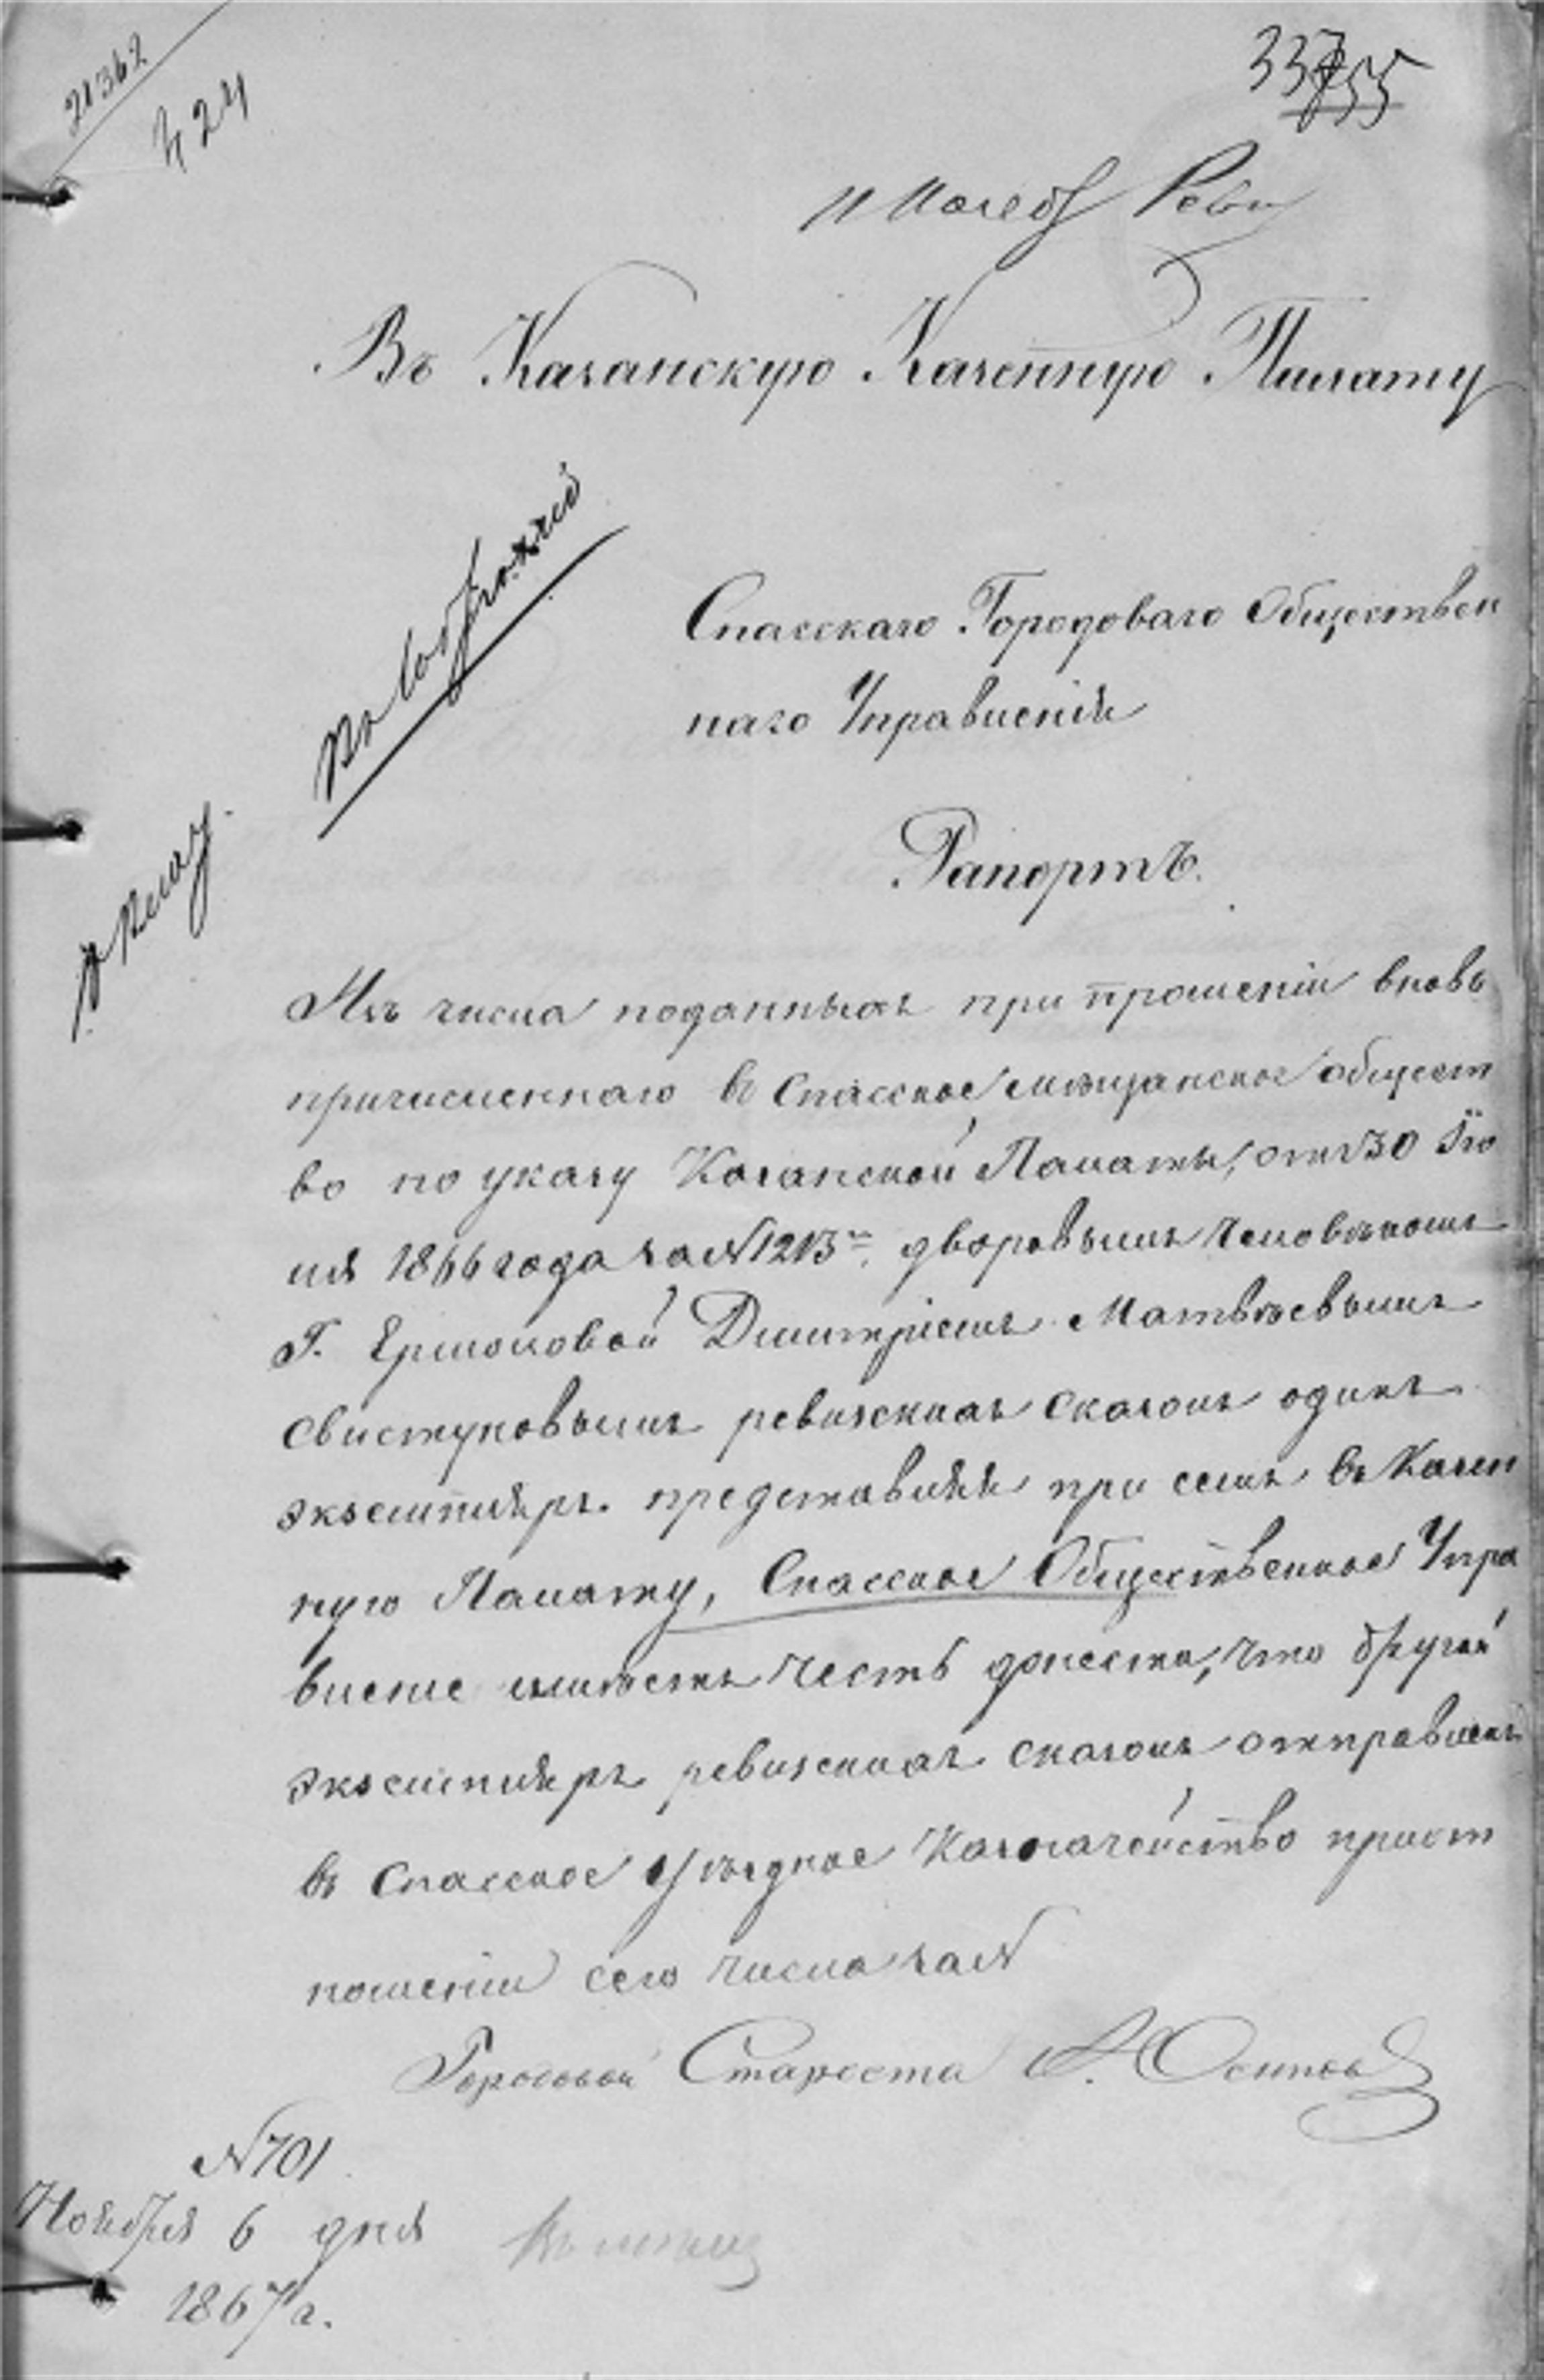 21362
424
337
355
11 Ноября Реви
Въ Казанскую Казенную Палату
Спасскаго Городоваго Обществен
наго Управленія
Рапортъ.
Изъ числа поданныхъ при прошеніи вновь
причисленнаго въ Спасское мѣщанское общест
во по указу Казанской Палаты, отъ 30 Ію
ля 1866 года за № 1213м. дворовымъ человѣкомъ
Г. Ермоловой Димитріемъ Матвѣевымъ
Свистуновымъ ревизскихъ сказокъ одинъ
экземпляръ представляя при семъ въ Казен
ную Палату, Спасское Общественное Упра
вленіе имѣетъ честь донести, что другой
экземпляръ ревизскихъ сказокъ отправленъ
въ Спасское Уѣздное Казначейство при от
ношеніи сего числа за №
Городовой Староста Осиповъ
№ 701
Ноября 6 дня
1867 г.